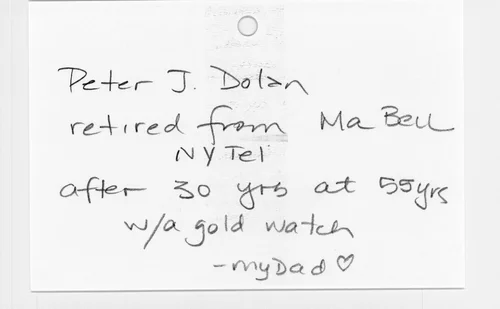 Peter J. Dolan
retired from Ma Bell
NY Tel
after 30 yrs at 55yrs
w/a gold watch
-my Dad ♡